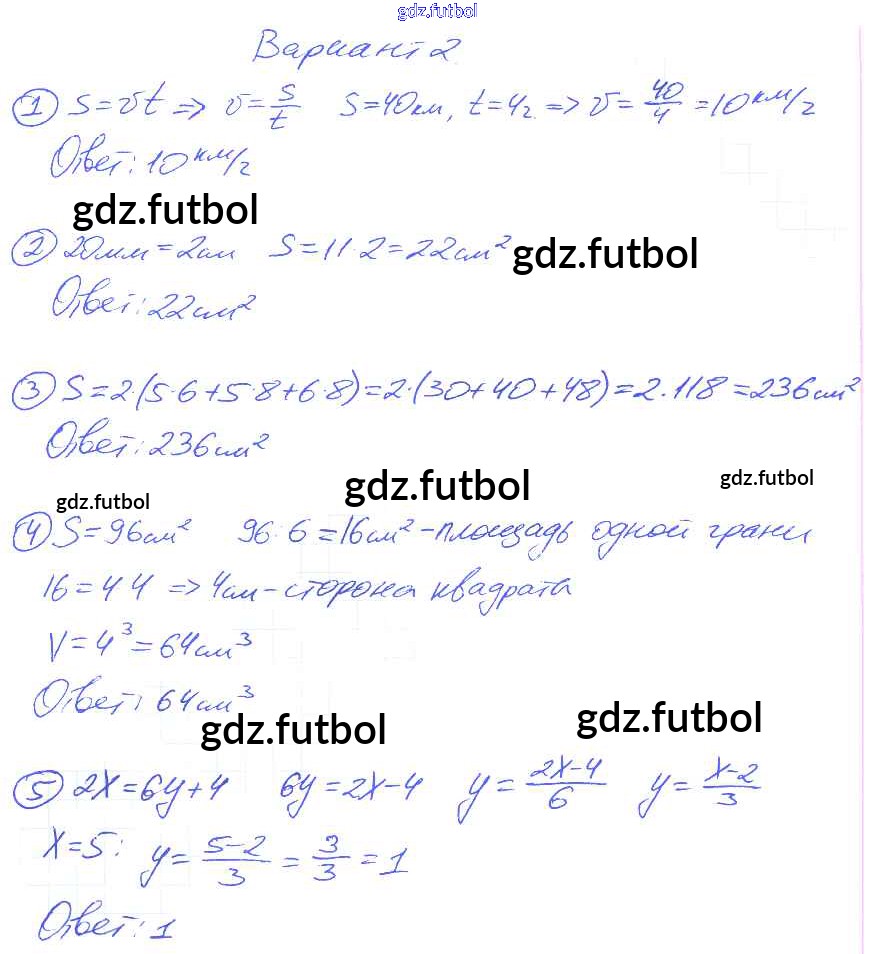 gdz.futbol
Вариант 2
① S=vt ⇒ v=s/t S=40км, t=4ч ⇒ v=40/4=10км/ч
Ответ: 10км/ч
gdz.futbol
② 20мм=2см S=11·2=22см² gdz.futbol
Ответ: 22см²
③ S=2·(5·6+5·8+6·8)=2·(30+40+48)=2·118=236см²
Ответ: 236см²
gdz.futbol gdz.futbol gdz.futbol
④ S=96см² 96:6=16см²-площадь одной грани
16=4·4 ⇒ 4см-сторона квадрата
V=4³=64см³
Ответ: 64см³
gdz.futbol gdz.futbol
⑤ 2x=6y+4 6y=2x-4 y=(2x-4)/6 y=(x-2)/3
x=5: y=(5-2)/3=3/3=1
Ответ: 1